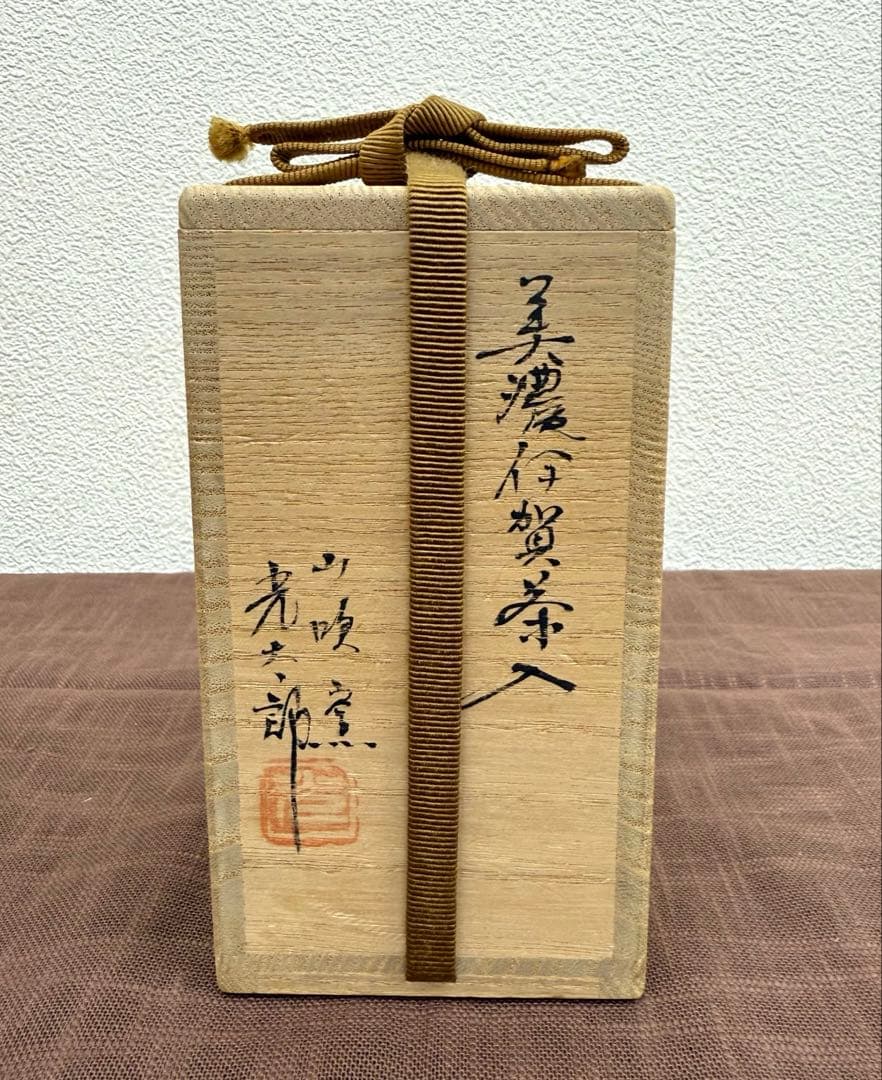 美濃伊賀茶入
山吹窯
光太郎